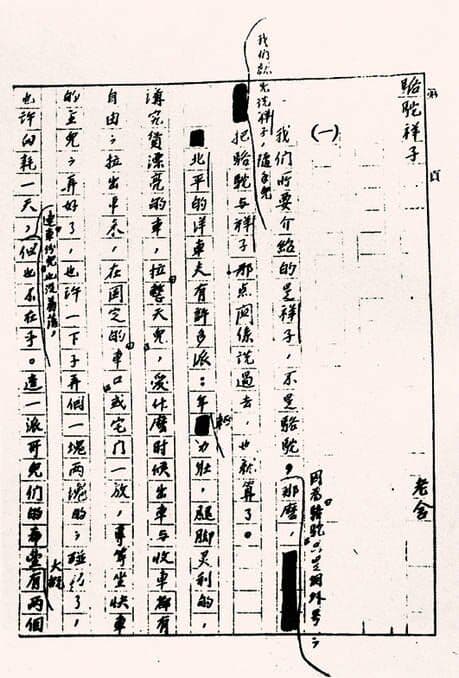 第 頁
駱駝祥子 老舍
(一)
我们所要介绍的是祥子，不是駱駝，因为“駱駝”只是個外号；那麽，
我们就先说祥子，随手兒
把駱駝与祥子那点関係說過去，也就算了。
北平的洋車夫有許多派：年輕力壯，腿脚灵利的，
講究賃漂亮的車，拉“整天兒”，愛什麽時候出車与收車都有
自由；拉出車来，在固定的“車口”或宅门一放，專等坐快車
的主兒；弄好了，也許一下子弄個一塊兩塊的；碰巧了，
也許白耗一天，連“車份兒”也沒着落，但也不在乎。這一派哥兒们的希望大概有兩個